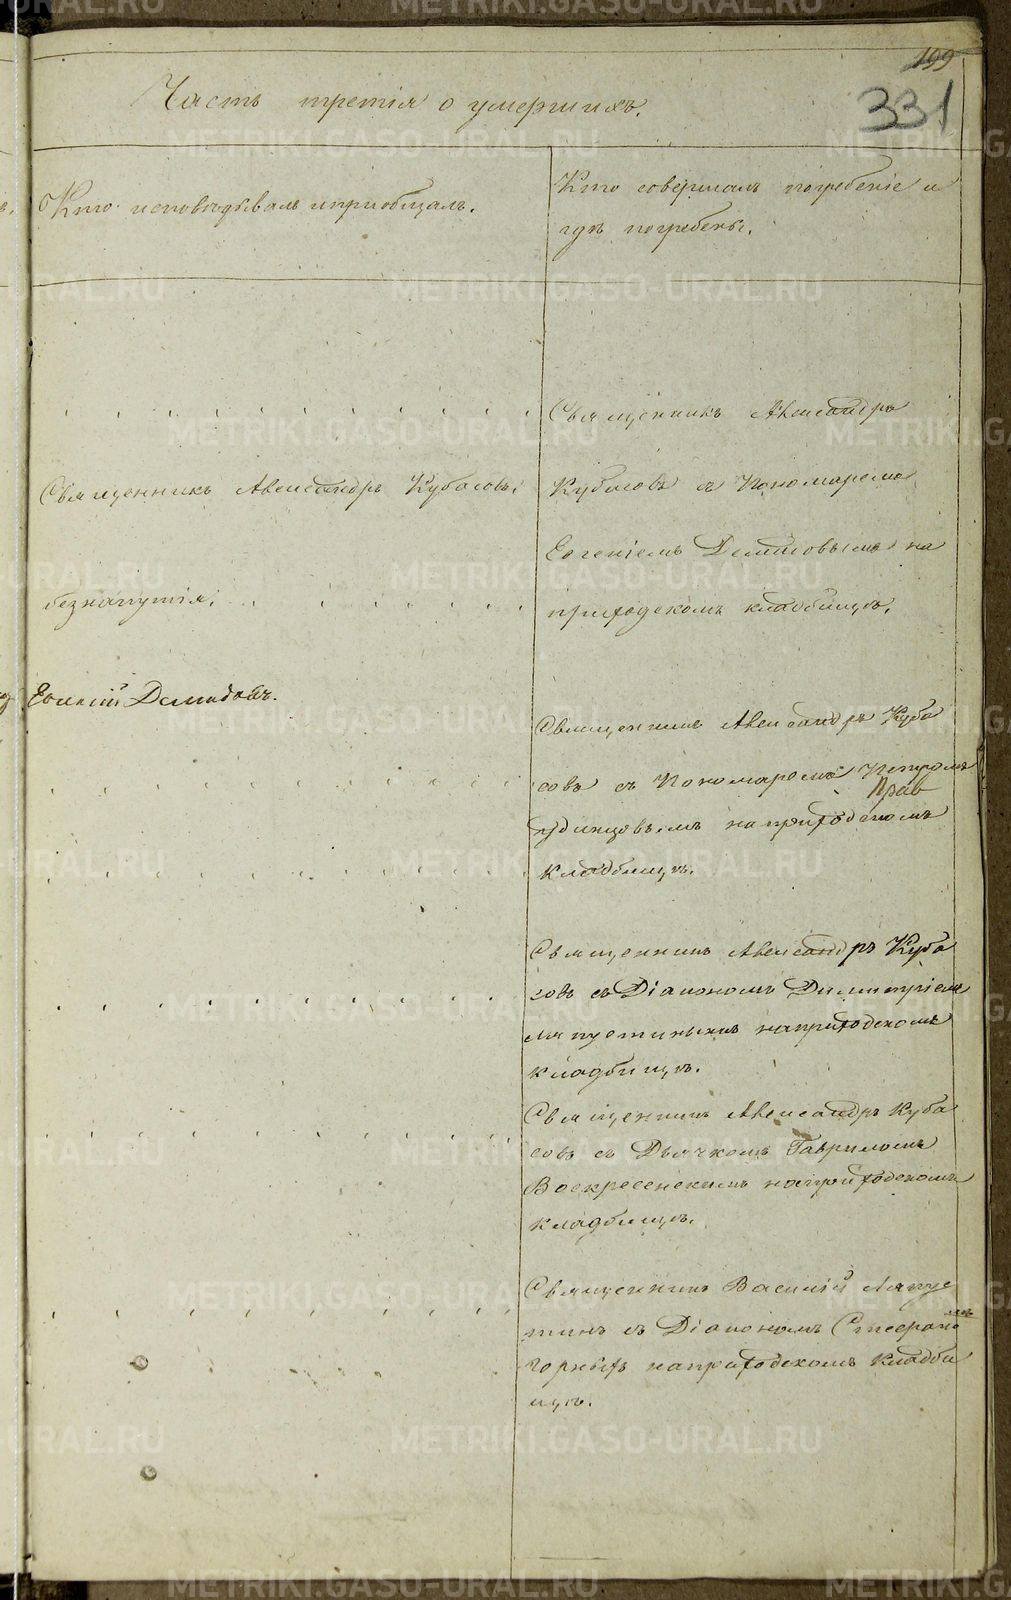 199
331
Часть третія о умершихъ.
Кто исповѣдывалъ и приобщалъ.
Кто совершалъ погребеніе и
гдѣ погребены.
Священникъ Александръ
Священникъ Александръ Кубасовъ;
Кубасовъ съ Пономаремъ
Евгеніемъ Демидовымъ на
безнапутія;
приходскомъ кладбищѣ.
Евгеній Демидовъ.
Священникъ Александръ Куба
совъ съ Пономаремъ Петромъ
Прав
удинцовымъ на приходскомъ
кладбищѣ.
Священникъ Александръ Куба
совъ съ Діакономъ Димитріемъ
на приходскомъ
кладбищѣ.
Священникъ Александръ Куба
совъ съ Дьячкомъ Гавриломъ
Воскресенскимъ на приходскомъ
кладбищѣ.
Священникъ Василій Ляпус
тинъ съ Діакономъ Стефано
мъ
Горныхъ на приходскомъ кладби
щѣ.
METRIKI.GASO-URAL.RU